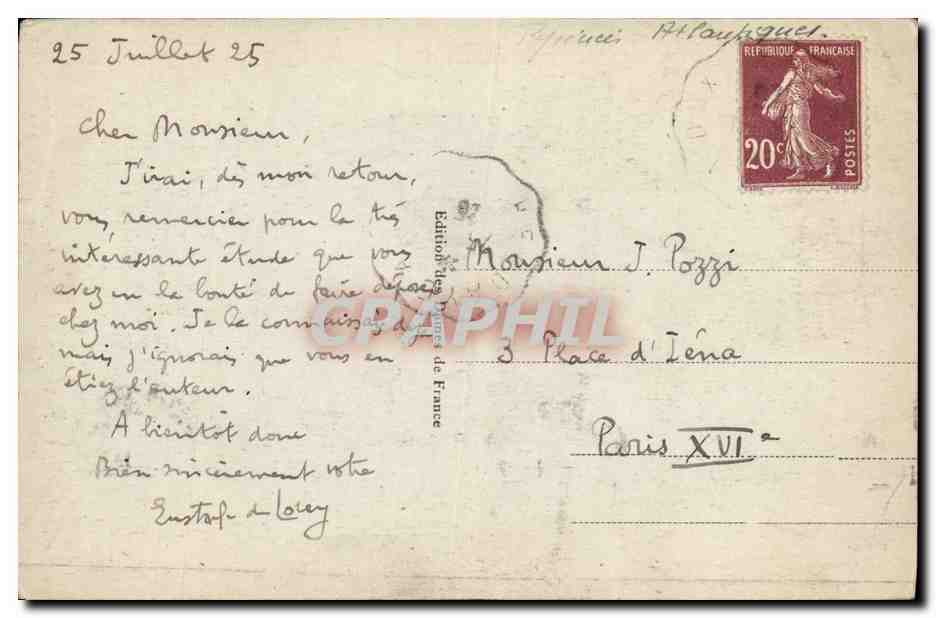 Pyrénées Atlantiques.
25 Juillet 25
REPUBLIQUE FRANÇAISE
20c
POSTES
Cher Monsieur,
J'irai, dès mon retour,
vous remercier pour la très
intéressante étude que vous
avez eu la bonté de faire déposer
chez moi. Je la connaissais déjà
mais j'ignorais que vous en
étiez l'auteur.
A bientôt donc
Bien sincèrement votre
Eustache de Lorey
Edition des Dames de France
CPAPHIL
Monsieur J. Pozzi
3 Place d'Iéna
Paris XVIe